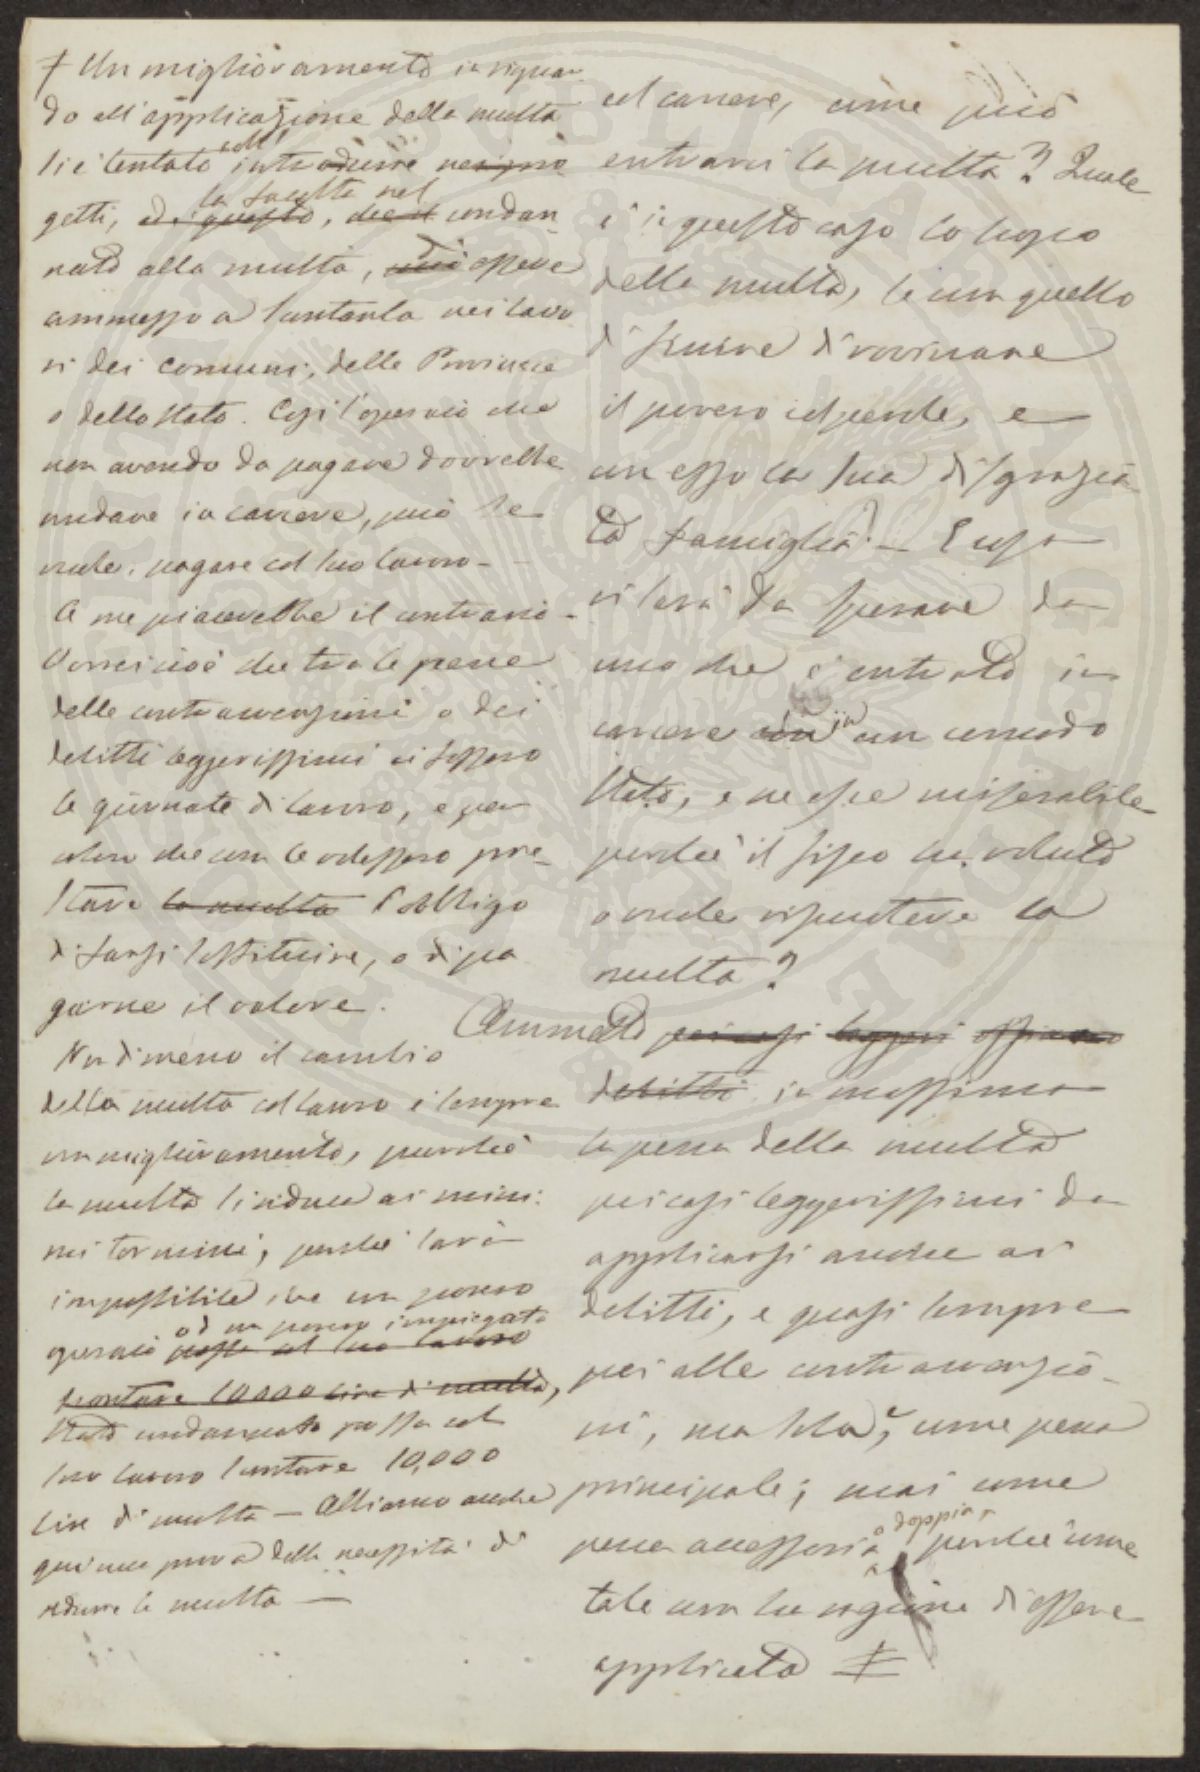 ≠ Un miglioramento in riguar-
do all'applicazione della multa
si è tentato coll' introdurre nei pro
getti, ed è questo, la facoltà nel che il condan-
nato alla multa, di essere
ammesso a scontarla nei lavo
ri dei comuni, delle Provincie
o dello stato. Così l'operaio che
non avendo da pagare dovrebbe
andare in carcere, può se
vuole, pagare col suo lavoro -
A me piacerebbe il contrario -
Vorrei cioè che tra le pene
delle contravvenzioni o dei
delitti leggerissimi ci fossero
le giornate di lavoro, e per
coloro che non le volessero pre-
stare la multa l'obbligo
di farsi sostituire, o di pa
garne il valore.
Nondimeno il cambio
della multa col lavoro è sempre
un miglioramento, purchè
la multa si riduca ai mini-
mi termini, perchè sarà
impossibile che un povero
operaio od un povero impiegato possa col suo lavoro
scontare 10000 lire di multa,
stato condannato possa col
suo lavoro scontare 10,000
lire di multa — Abbiamo anche
qui una prova della necessità di
ridurre la multa —
col carcere, come può
entrarci la multa? Quale
è in questo caso lo scopo
della multa, se non quello
di finire di rovinare
il povero colpevole, e
con esso la sua disgrazia
ta famiglia? — Cosa
vi sarà da sperare da
uno che è entrato in
carcere in un comodo
stato, e ne esce miserabile
perchè il fisco ha voluto
o vuole riscuotere la
multa?
Ammetto pei casi leggeri
delitti in massima
la pena della multa
pei casi leggerissimi da
applicarsi anche ai
delitti, e quasi sempre
poi alle contravvenzio-
ni, ma sola, come pena
principale; mai come
pena accessoria o doppia, perchè come
tale non ha ragione di essere
applicata ≠